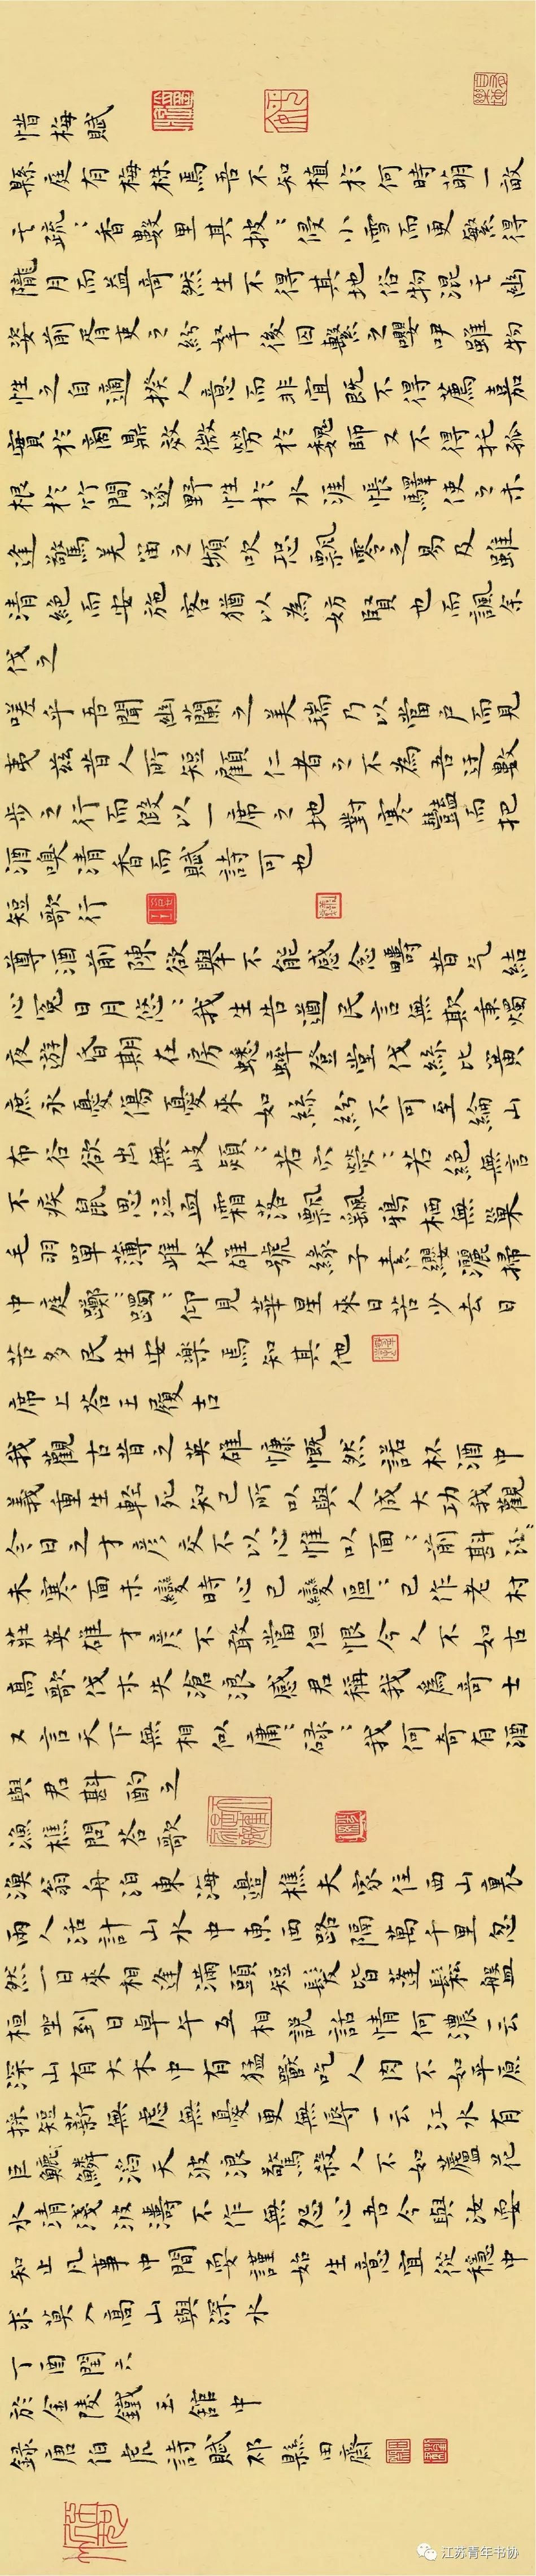 惜梅賦
縣庭有梅株焉吾不知植於何時萌一畝
其疏〻香數里其披〻侵小雪而更繁得
隴月而益奇然生不得其地俗物混其幽
姿前胥吏之紛拏後囚繫之嚶咿雖物
性之自適揆人意而非宜既不得薦嘉
實於商鼎效微勞於魏師又不得托孤
根於竹間遂野性於水涯悵驛使之未
逢驚羌笛之頻吹恐飄零之易及雖
清絕而安施客猶以為妨賢也而諷余
伐之
嗟乎吾聞幽蘭之美瑞乃以當戶而見
夷茲昔人所短顧仁者之不為吾迂數
步之行而假以一席之地對寒豔而把
酒嗅清香而賦詩可也
短歌行
尊酒前陳欲舉不能感念疇昔气結
心冤日月悠〻我生告遒民言無欺秉燭
夜遊昏期在房蟋蟀登堂伐絲比簧
庶永憂傷憂來如絲紛不可至綸山
布谷欲出無岐熲〻若穴熒〻若絕無言
不疾鼠思泣血霜落飄飄鴉栖無巢
毛羽單薄雌伏雄號緣子素纓灑掃
中庭躑〻躅〻仰見華星來日苦少去日
苦多民生安樂焉知其他
席上答王履吉
我觀古昔之英雄慷慨然諾杯酒中
義重生輕死知己所以與人成大功我觀
今日之才彥交不以心惟以面〻前斟酒〻
未寒面未變時心已變區〻已作老村
莊英雄才彥不敢當但恨今人不如古
高歌伐木失滄浪感君稱我為奇士
又言天下無相似庸〻碌〻我何奇有酒
與君斟酌之
漁樵問答歌
漁翁舟泊東海邊樵夫家住西山裏
兩人活計山水中東西路隔萬千里忽
然一日來相逢滿頭短髮皆蓬鬆盤
桓坐到日卓午互相說話情何濃一云
深山有大木中有猛獸吃人肉不如平原
採短薪無慮無憂更無辱一云江水有
巨鱺鱗滔天波浪驚殺人不如蘆花
水清淺波濤不作無怨心吾今與汝要
知止凡事中間要謹始生意宜從穩中
求莫入高山與深水
丁酉閏六
於金陵鐵玉舘中
録唐伯虎詩賦祁縣田齋
江苏青年书协